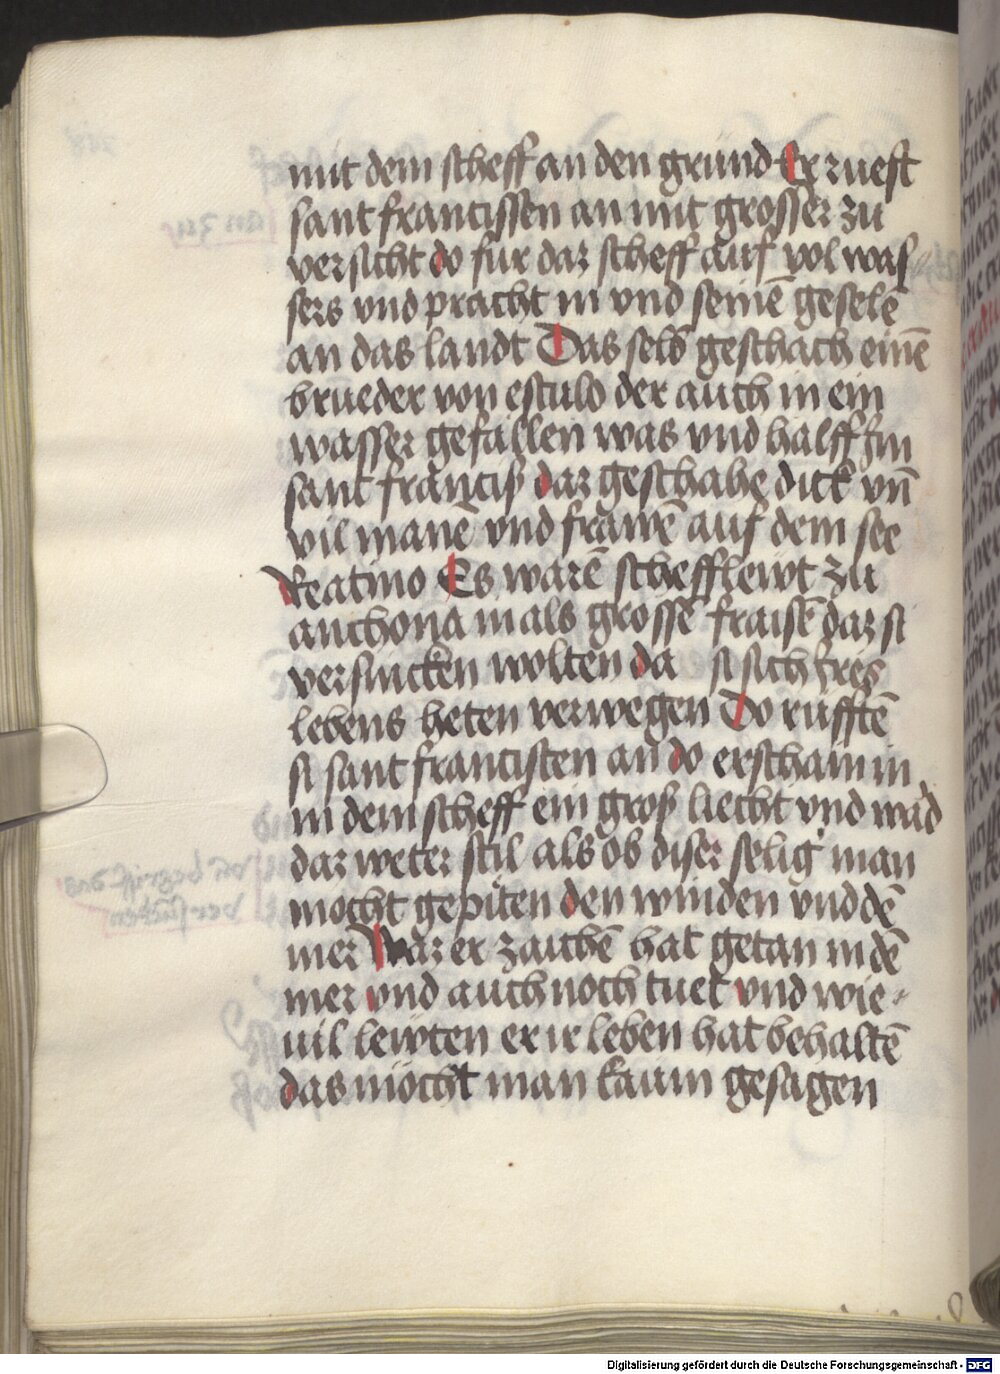 mit dem scheff an den grund Er rueft
sant francissen an mit grosser zu
versicht do fur daz scheff auf vol was
sers vnd pracht in vnd seinē geselē
an das landt Das selb geschach einē
brueder von esculo der auch in ein
wasser gefallen was vnd halff im
sant francisß daz geschahe dick vn̄
vil manē vnd frawē auf dem see
Reatino Es warē schefflewt zu
anchona in als grossē fraisē daz si
versincken wolten da si sich irēs
lebens heten verwegen Do rufftē
si sant francisten an do erschain in
in dem scheff ein groß liecht vnd ward
daz weter stil als ob diser selig man
mocht gepiten den winden vnd dē
mer Waz er zaichē hat getan in dē
mer vnd auch noch tuet vnd wie
uil lewten er ir leben hat behaltē
das möcht man kaum gesagen
Digitalisierung gefördert durch die Deutsche Forschungsgemeinschaft - DFG